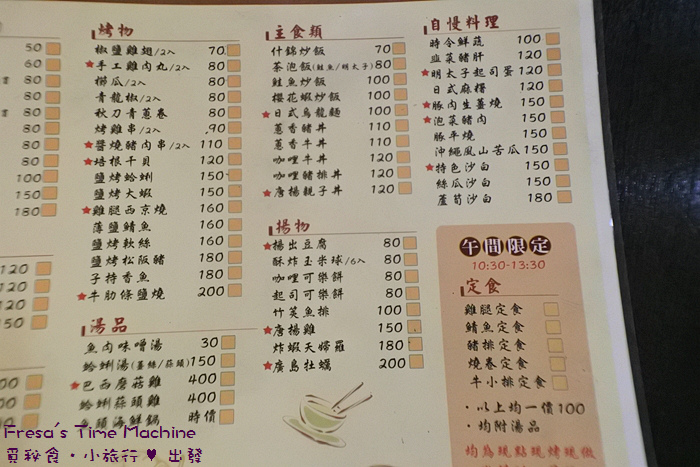 50
60
80
80
80
80
80
100
150
180
120
120
120
150
烤物
椒鹽雞翅/2入 70
★手工雞肉丸/2入 80
櫛瓜/2入 80
青龍椒/2入 80
秋刀青蔥卷 80
烤雞串/2入 90
★醬燒豬肉串/2入 110
★培根干貝 120
鹽烤蛤蜊 150
鹽烤大蝦 150
★雞腿西京燒 160
薄鹽鯖魚 160
鹽烤軟絲 160
鹽烤松阪豬 180
子持香魚 180
★牛肋條鹽燒 200
湯品
魚肉味噌湯 30
蛤蜊湯(薑絲/蒜頭) 150
★巴西蘑菇雞 400
蛤蜊蒜頭雞 400
魚頭海鮮鍋 時價
主食類
什錦炒飯 70
茶泡飯(鮭魚/明太子) 80
鮭魚炒飯 100
櫻花蝦炒飯 100
★日式烏龍麵 100
蔥香豬丼 110
蔥香牛丼 110
咖哩牛丼 120
咖哩豬排丼 120
★唐揚親子丼 120
揚物
★揚出豆腐 80
酥炸玉米球/6入 80
咖哩可樂餅 80
起司可樂餅 80
竹筴魚排 100
★唐揚雞 150
炸蝦天婦羅 180
★廣島牡蠣 200
自慢料理
時令鮮蔬 100
韭菜豬肝 120
★明太子起司蛋 120
日式麻糬 120
★豚肉生薑燒 150
★泡菜豬肉 150
豚平燒 150
沖繩風山苦瓜 150
★特色沙白 150
絲瓜沙白 150
蘆筍沙白 180
午間限定
10:30-13:30
定食
雞腿定食
鯖魚定食
豬排定食
燒卷定食
牛小排定食
・以上均一價100
・均附湯品
均為現點現烤現做
Fresa's Time Machine
覓秘食・小旅行♥出發